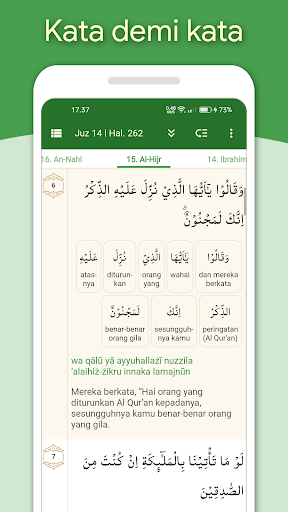 Kata demi kata
17.37
73%
Juz 14 | Hal. 262
16. An-Nahl 15. Al-Hijr 14. Ibrahim
6
وَقَالُوْا يٰٓاَيُّهَا الَّذِيْ نُزِّلَ عَلَيْهِ الذِّكْرُ
اِنَّكَ لَمَجْنُوْنٌ ۗ
وَقَالُوْا يٰٓاَيُّهَا الَّذِيْ نُزِّلَ عَلَيْهِ
dan mereka berkata
wahai
orang yang
diturun-kan
atas-nya
الذِّكْرُ اِنَّكَ لَمَجْنُوْنٌ
peringatan (Al Qur'an)
sesungguh-nya kamu
benar-benar orang gila
wa qālū yā ayyuhallażī nuzzila
'alaihiż-żikru innaka lamajnūn
Mereka berkata, "Hai orang yang
diturunkan Al Qur'an kepadanya,
sesungguhnya kamu benar-benar orang
yang gila.
7
لَوْ مَا تَأْتِيْنَا بِالْمَلٰۤىِٕكَةِ اِنْ كُنْتَ مِنَ
الصّٰدِقِيْنَ